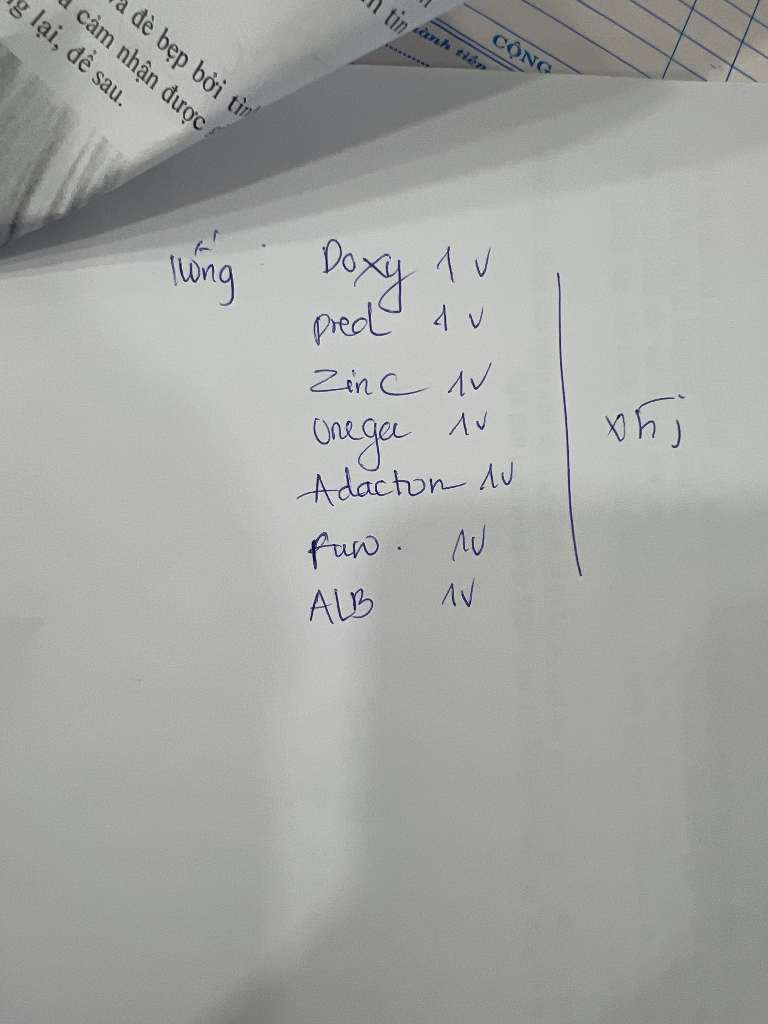 à đè bẹp bởi tìn
cảm nhận được
g lại, để sau.
tin
CỘNG
hành tiền
uống : Doxy 1 v
pred 1 v
Zinc 1v
Omega 1v
Adacton 1v
Furo . 1v
ALB 1v